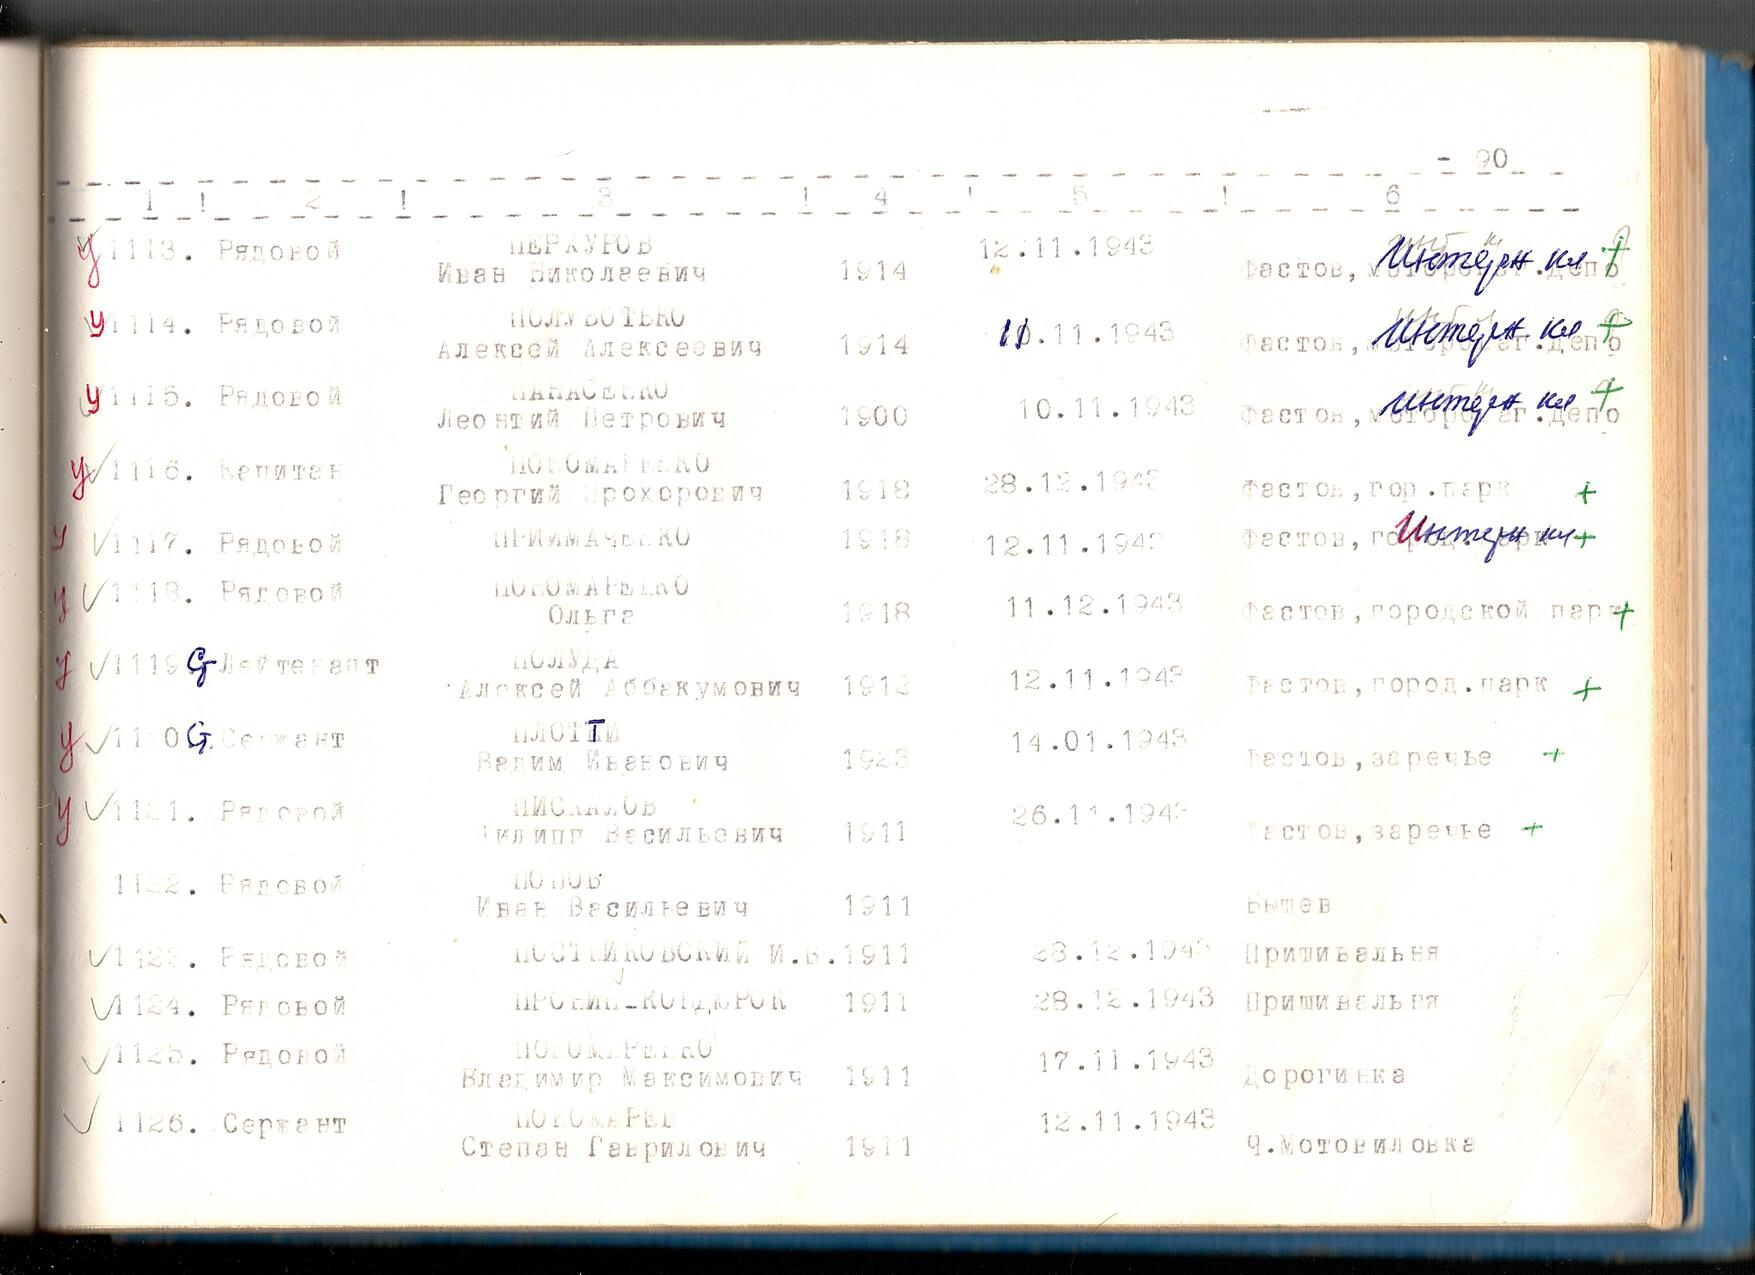 - 90
1 ! 2 ! 3 ! 4 ! 5 ! 6
у 1113. Рядовой ПЕРКУРОВ 12.11.1943 Интерн кл +
Иван Николаевич 1914 Фастов,
у 1114. Рядовой ПОЛУБОТЬКО 11.11.1943 Интерн кл +
Алексей Алексеевич 1914 Фастов,
у 1115. Рядовой ПАНАСЕНКО 10.11.1943 Интерн кл +
Леонтий Петрович 1900 Фастов,
у 1116. Капитан ПОНОМАРЕНКО 28.12.1943
Георгий Прохорович 1918 Фастов,гор.парк +
у 1117. Рядовой ПРИЙМАЧЕНКО 1918 12.11.1943 Фастов, Интерн кл +
у 1118. Рядовой ПОНОМАРЕНКО 11.12.1943
Ольга 1918 Фастов,городской парк +
у 1119. Лейтенант ПОЛУДА 12.11.1943
Алексей Аббакумович 1912 Фастов,город.парк +
у 1120. Сержант 14.01.1943
Вадим Иванович 1923 Фастов,заречье +
у 1121. Рядовой ПИСКАЛОВ 26.11.1943
Филипп Васильевич 1911 Фастов,заречье +
1122. Рядовой ПОПОВ
Иван Васильевич 1911 Бышев
1123. Рядовой И.В. 1911 28.12.1943 Пришивальня
1124. Рядовой 1911 28.12.1943 Пришивальня
1125. Рядовой ПОНОМАРЕНКО 17.11.1943
Владимир Максимович 1911 Дорогинка
1126. Сержант ПОНОМАРЕВ 12.11.1943
Степан Гаврилович 1911 Ч.Мотовиловка